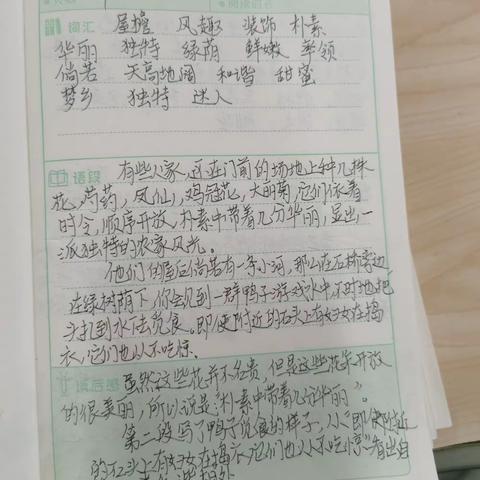 词汇 屋檐 风趣 装饰 朴素
华丽 独特 绿荫 鲜嫩 率领
倘若 天高地阔 和谐 甜蜜
梦乡 独特 迷人
语段 有些人家,还在门前的场地上种几株
花,芍药,凤仙,鸡冠花,大丽菊,它们依着
时令,顺序开放,朴素中带着几分华丽,显出一
派独特的农家风光。
他们的屋后倘若有一条小河,那么在石桥旁边
在绿树荫下,你会见到一群鸭子游戏水中,不时地把
头扎到水下去觅食。即使附近的石头上有妇女在捣
衣,它们也从不吃惊.
读后感 虽然这些花并不名贵,但是这些花朵开放
的很美丽,所以说是"朴素中带着几分华丽"。
第二段写了鸭子觅食的样子,从"即使附近
的石头上有妇女在捣衣它们也从不吃惊"看出自